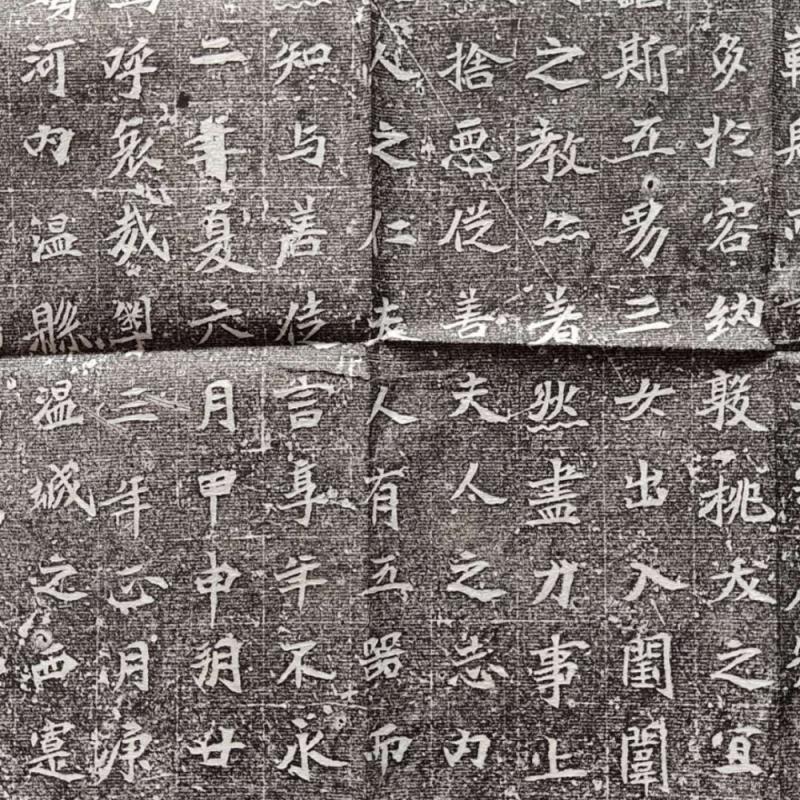 則而
多扵容納桃之宜
斯五男三女出入閨闈
之教無著然盡力事上
捨惡從善夫人之志内
人之仁夫人有五器而
知与善徒言享年不永
二年夏六月甲申朔廿
呼哀哉粤三年正月庚
河内温縣温城之西寔